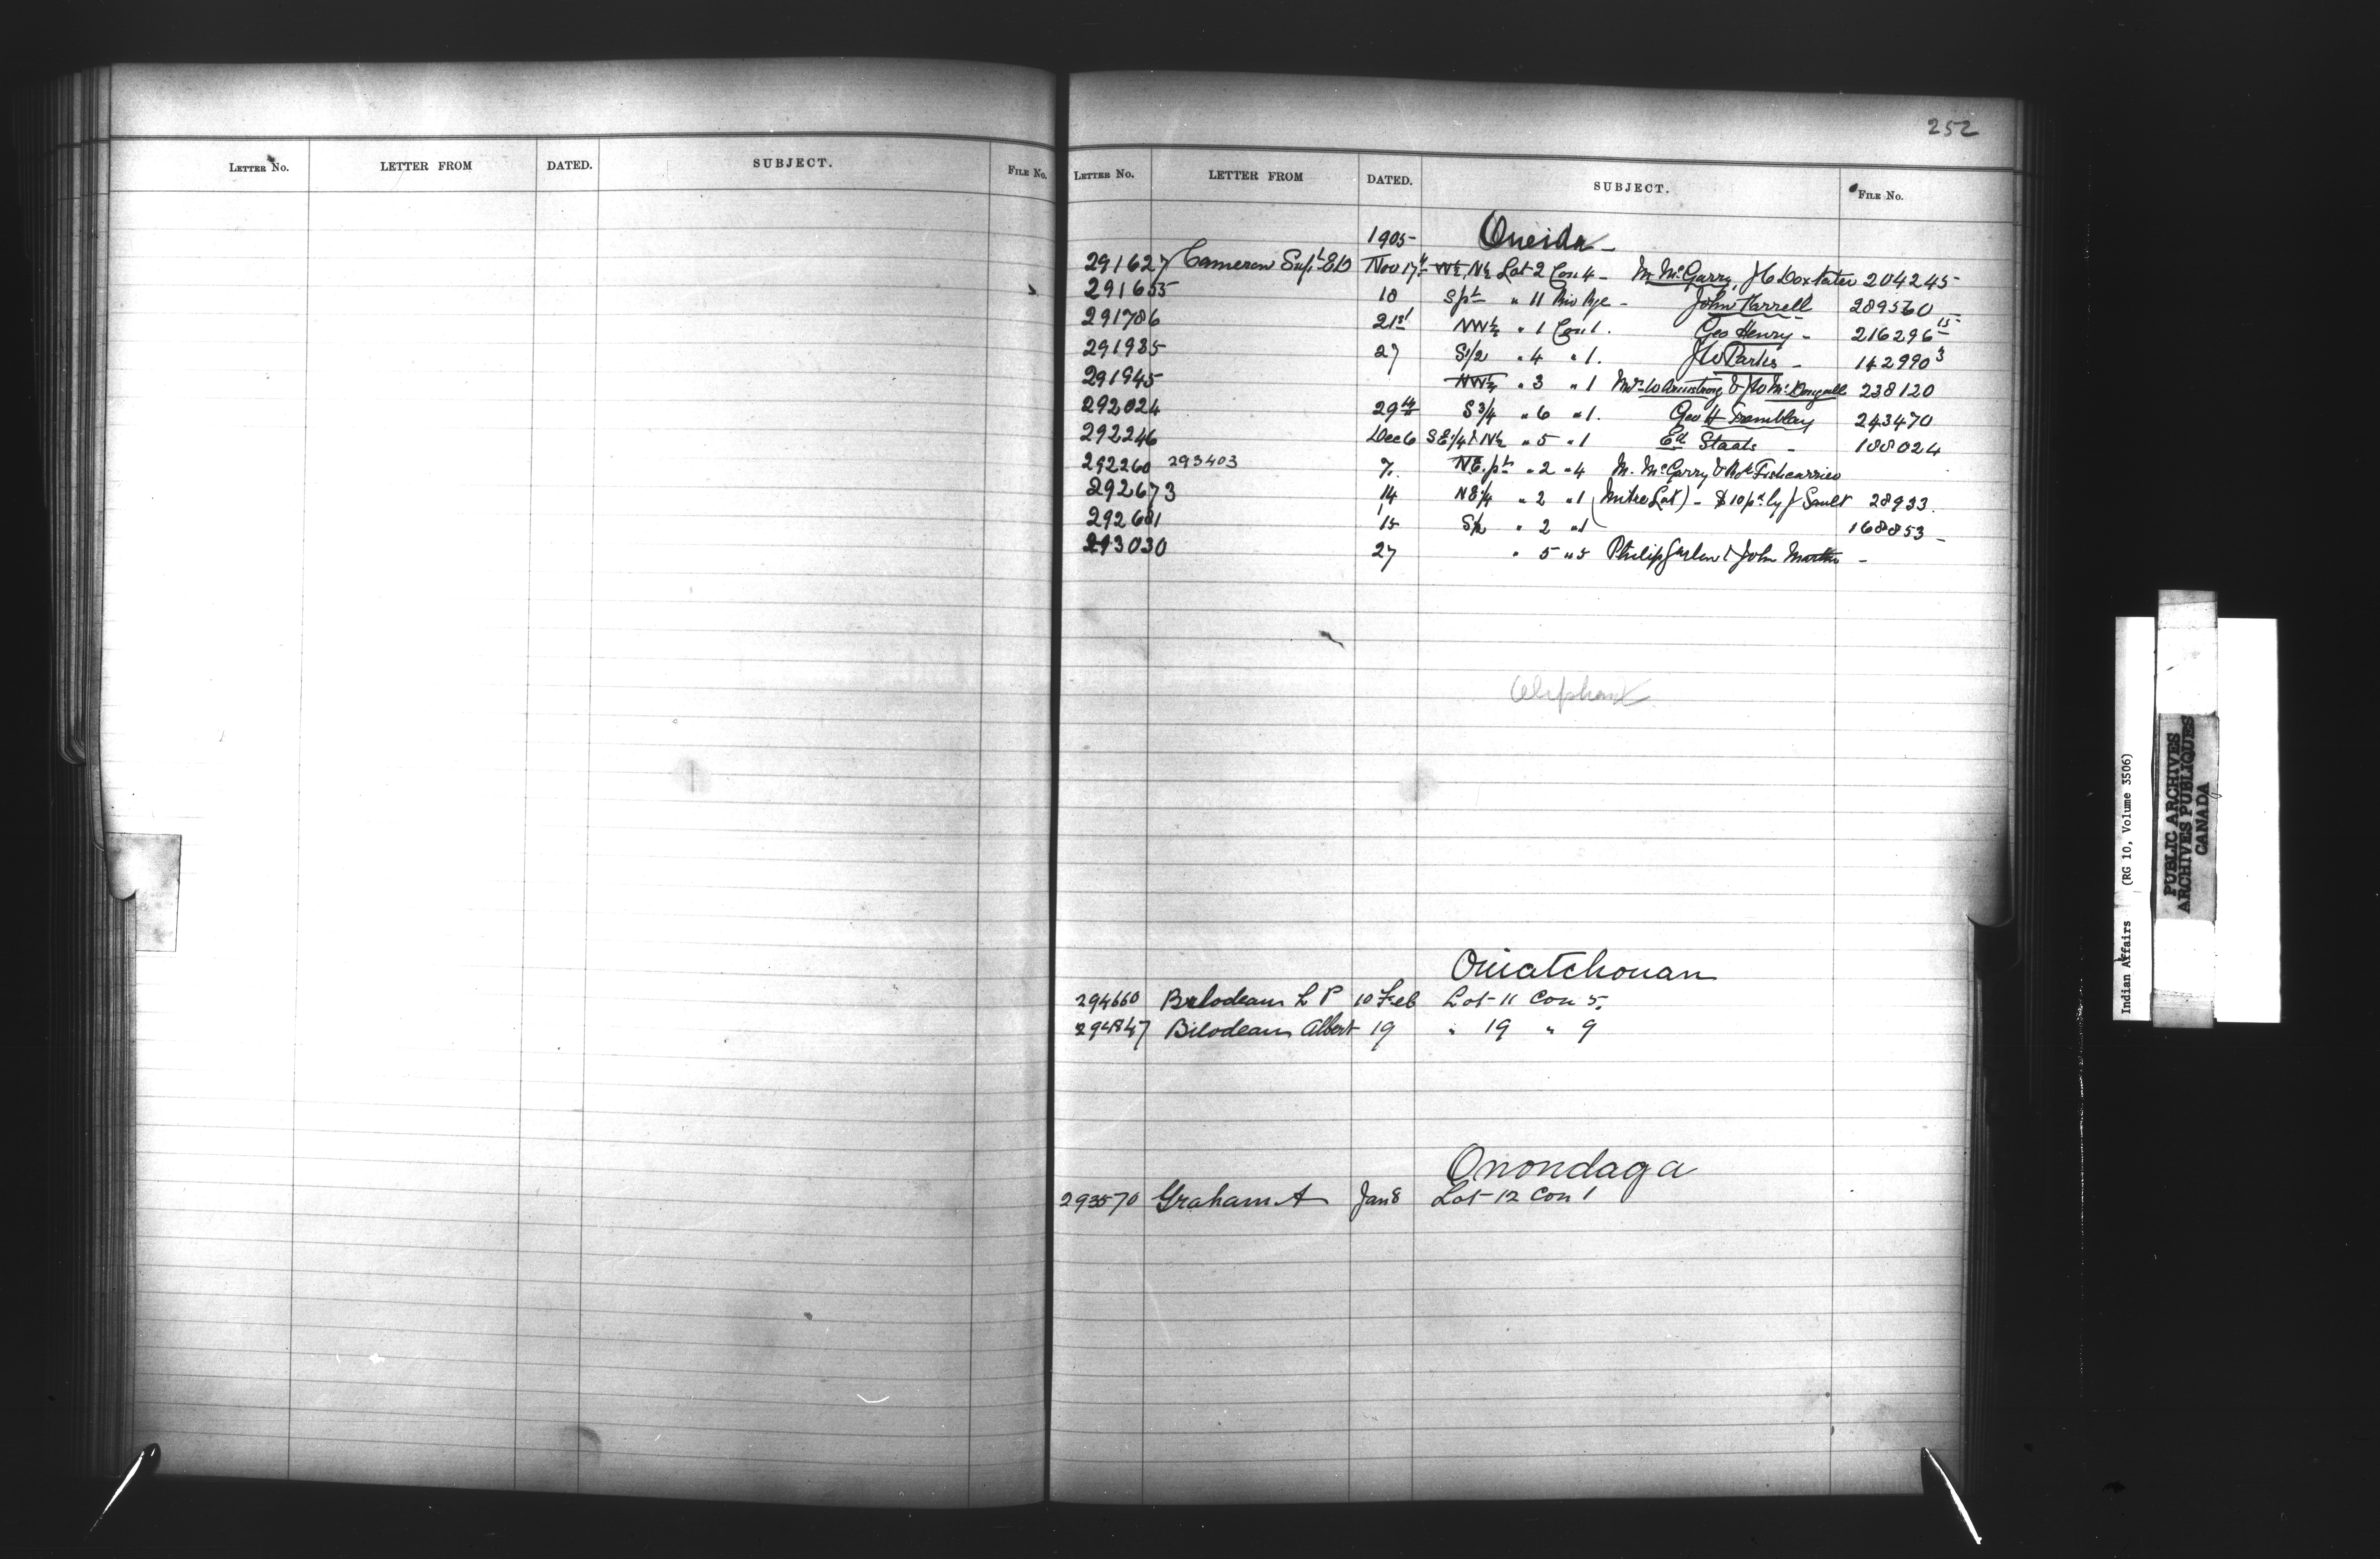 LETTER NO. LETTER FROM DATED. SUBJECT. FILE NO.
252
LETTER NO. LETTER FROM DATED. SUBJECT. FILE NO.
1905 Oneida
291627 Cameron Supt E D Nov 17th W½, N½ Lot 2 Con 4 - M McGarry, J C Doxtater 204245
291655 18 S pt " 11 Riv Rge - John Farrell 289560
291786 21st NW¼ " 1 Con 1. Geo Henry - 216296 15
291935 27 S1/2 " 4 " 1. J W Parks - 142990 3
291945 NW¼ " 3 " 1 Mrs W Armstrong & J W McDougall 238120
292024 29th S 3/4 " 6 " 1. Geo H Tremblay 243470
292246 Dec 6 SE1/4 & N½ " 5 " 1 Ed Staats - 188024
292260 293403 7. NE. pt " 2 " 4 M. McGarry & Robt
292673 14 NE1/4 " 2 " 1 (Mitre Lot) - $10 pd by J Sault 28933.
292681 15 S½ " 2 " 1 168853
293030 27 " 5 " 5 Philip & John Martin -
Oliphant
Ouiatchouan
294660 Bilodeau L P 10 Feb Lot 11 Con 5.
294847 Bilodeau Albert 19 " 19 " 9
Onondaga
293570 Graham A Jan 8 Lot 12 Con 1
Indian Affairs (RG 10, Volume 3506)
PUBLIC ARCHIVES
ARCHIVES PUBLIQUES
CANADA